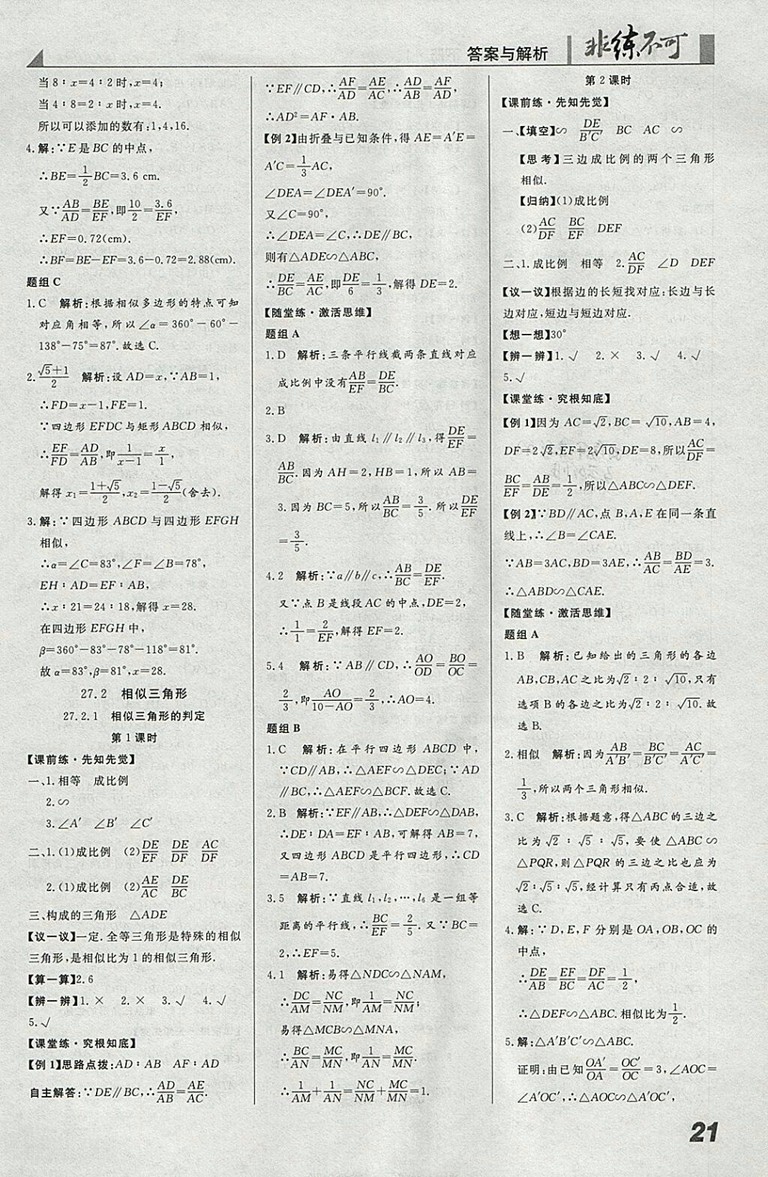 答案与解析 非练不可
当8∶x=4∶2时,x=4;
当4∶8=2∶x时,x=4.
所以可以添加的数有:1,4,16.
4.解:∵E是BC的中点,
∴BE=1/2BC=3.6 cm.
又∵AB/AD=BE/EF,即10/2=3.6/EF,
∴EF=0.72(cm).
∴BF=BE-EF=3.6-0.72=2.88(cm).
题组C
1.C 解析:根据相似多边形的特点可知
对应角相等,所以∠α=360°-60°-
138°-75°=87°.故选C.
2.(√5+1)/2 解析:设AD=x,∵AB=1,
∴FD=x-1,FE=1.
∵四边形EFDC与矩形ABCD相似,
∴EF/FD=AD/AB,即1/(x-1)=x/1,
解得x₁=(1+√5)/2,x₂=(1-√5)/2(舍去).
3.解:∵四边形ABCD与四边形EFGH
相似,
∴α=∠C=83°,∠F=∠B=78°,
EH∶AD=EF∶AB,
∴x∶21=24∶18,解得x=28.
在四边形EFGH中,
β=360°-83°-78°-118°=81°.
故α=83°,β=81°,x=28.
27.2 相似三角形
27.2.1 相似三角形的判定
第1课时
【课前练·先知先觉】
一、1.相等 成比例
2.∽
3.∠A′ ∠B′ ∠C′
二、1.(1)成比例 (2)DE/EF DE/DF AC/DF
2.(1)成比例 (2)AE/AC DE/BC
三、构成的三角形 △ADE
【议一议】一定.全等三角形是特殊的相似
三角形,是相似比为1的相似三角形.
【算一算】2.6
【辨一辨】1.× 2.× 3.√ 4.√
5.√
【课堂练·究根知底】
【例1】思路点拨:AD∶AB AF∶AD
自主解答:∵DE∥BC,∴AD/AB=AE/AC.
∵EF∥CD,∴AF/AD=AE/AC,∴AD/AB=AF/AD,
∴AD²=AF·AB.
【例2】由折叠与已知条件,得AE=A′E=
A′C=1/3AC,
∠DEA=∠DEA′=90°.
又∠C=90°,
∴∠DEA=∠C,∴DE∥BC,
则有△ADE∽△ABC,
∴DE/BC=AE/AC,即DE/6=1/3,解得DE=2.
【随堂练·激活思维】
题组A
1.D 解析:三条平行线截两条直线对应
成比例中没有AB/EF=DE/BC.
2.B
3.D 解析:由直线l₁∥l₂∥l₃,得DE/EF=
AB/BC.因为AH=2,HB=1,所以AB=
3.因为BC=5,所以AB/BC=3/5.所以DE/EF
=3/5.
4.2 解析:∵a∥b∥c,∴AB/BC=DE/EF.
又∵点B是线段AC的中点,DE=2,
∴1/1=2/EF,解得EF=2.
5.4 解析:∵AB∥CD,∴AO/OD=BO/OC=
2/3,即AO/(10-AO)=2/3,∴AO=4.
题组B
1.C 解析:在平行四边形ABCD中,
∵CD∥AB,∴△AEF∽△DEC;∵AD
∥BC,∴△AEF∽△BCF.故选C.
2.B 解析:∵EF∥AB,∴△DEF∽△DAB,
∴DE∶DA=EF∶AB,可解得AB=7,
又四边形ABCD是平行四边形,∴CD
=AB=7.
3.5 解析:∵直线l₁,l₂,…,l₆是一组等
距离的平行线,∴BC/EF=2/5.又∵BC=
2,∴EF=5.
4.1 解析:易得△NDC∽△NAM,
∴DC/AM=NC/NM,即1/AM=NC/NM;
易得△MCB∽△MNA,
∴BC/AN=MC/MN,即1/AN=MC/MN,
∴1/AM+1/AN=NC/MN+MC/MN=1.
第2课时
【课前练·先知先觉】
一、【填空】∽ DE/B′C′ BC AC ∽
【思考】三边成比例的两个三角形
相似.
【归纳】(1)成比例
(2)AC/DF BC/EF DEF
二、1.成比例 相等 2.AC/DF ∠D DEF
【议一议】根据边的长短找对应:长边与长
边对应,短边与短边对应.
【想一想】30°
【辨一辨】1.√ 2.× 3.× 4.√
5.√
【课堂练·究根知底】
【例1】因为AC=√2,BC=√10,AB=4,
DF=2√2,EF=2√10,DE=8,所以AC/DF=
BC/EF=AB/DE=1/2,所以△ABC∽△DEF.
【例2】∵BD∥AC,点B,A,E在同一条直
线上,∴∠B=∠CAE.
∵AB=3AC,BD=3AE,∴AB/AC=BD/AE=3.
∴△ABD∽△CAE.
【随堂练·激活思维】
题组A
1.B 解析:已知给出的三角形的各边
AB,CB,AC之比为√2∶2∶√10,只有
选项B的各边之比为√2∶2∶√10.故
选B.
2.相似 解析:因为AB/A′B′=BC/B′C′=AC/A′C′=
1/3,所以两个三角形相似.
3.C 解析:根据题意,得△ABC的三边之
比为√2∶√5∶√5,要使△ABC∽
△PQR,则△PQR的三边之比也应为
√2∶√5∶√5,经计算只有丙点合适,故
选C.
4.解:∵D,E,F分别是OA,OB,OC的
中点,
∴DE/AB=EF/BC=DF/AC=1/2,
∴△DEF∽△ABC.相似比为1/2.
5.解:△A′B′C′∽△ABC.
证明:由已知OA′/OA=OC′/OC,∠AOC=
∠A′OC′,∴△AOC∽△A′OC′,
21